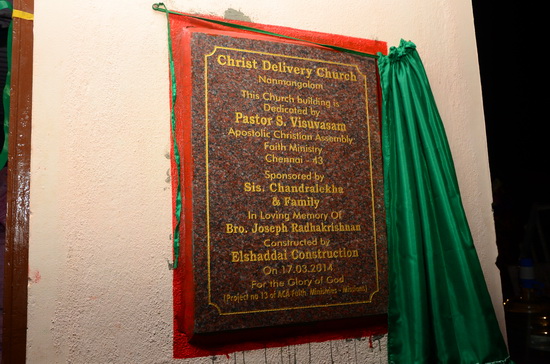 Christ Delivery Church
Nanmangalam
This Church building is
Dedicated by
Pastor S. Visuvasam
Apostolic Christian Assembly
Faith Ministry
Chennai - 43
Sponsored by
Sis. Chandralekha
& Family
In Loving Memory Of
Bro. Joseph Radhakrishnan
Constructed by
Elshaddai Construction
On 17.03.2014
For the Glory of God
(Project no 13 of ACA Faith Ministries - Missions)